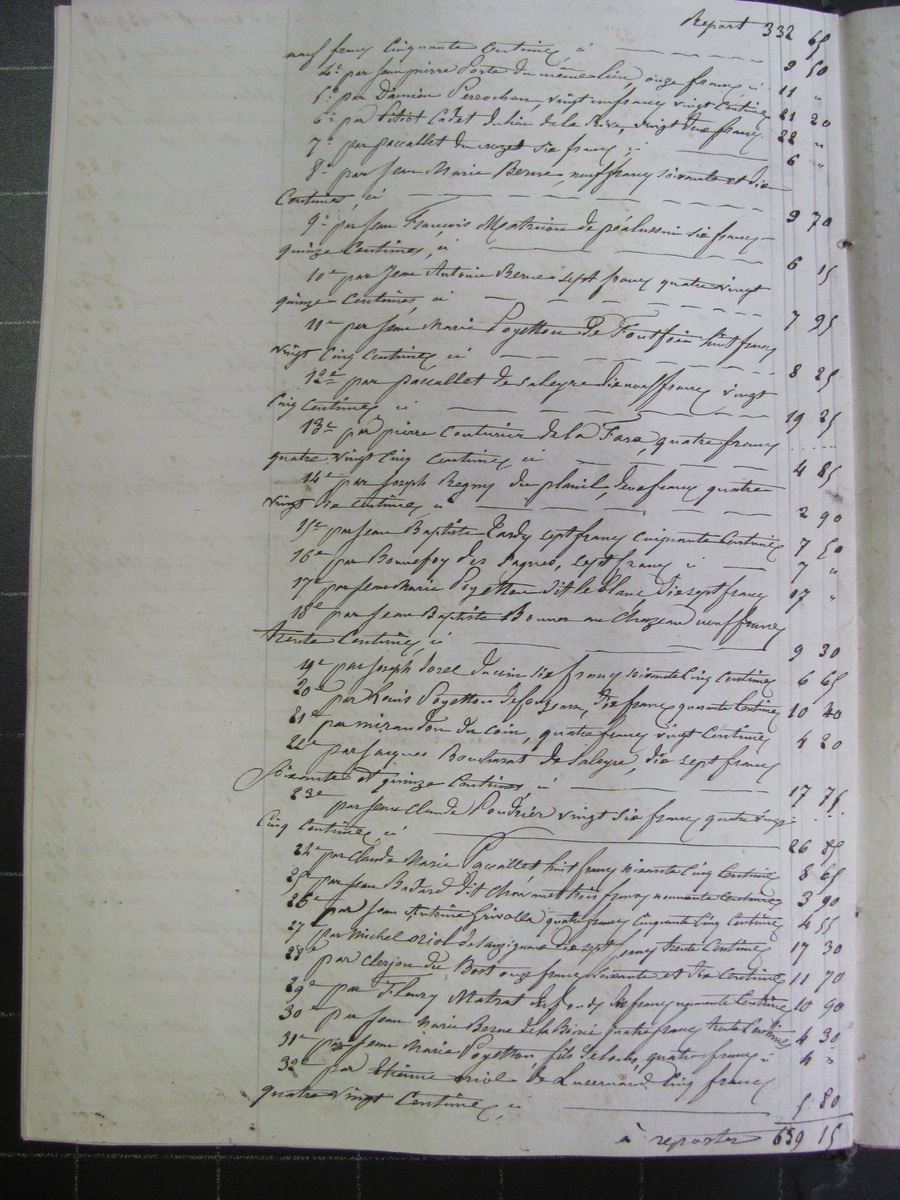 Report 332 65
neuf francs Cinquante Centimes, ci 9 50
4º par Jean pierre Porte du même lieu, onze francs ci 11 "
5º par Damien Perrochon, vingt un francs vingt Centimes 21 20
6º par Cadet du lieu de la Rive, vingt deux francs 22 "
7º par paccallet du six francs, ci 6 "
8º par Jean Marie Berne, neuf francs soixante et dix
Centimes, ci 9 70
9º par Jean François de pélussin six francs
quinze Centimes, ci 6 15
10e par Jean Antoine Berne sept francs quatre vingt
quinze Centimes, ci 7 95
11e par Jean Marie Poyetton de huit francs
vingt Cinq Centimes ci 8 25
12e par paccallet de saleyre dix neuf francs vingt
Cinq Centimes ci 19 25
13e par pierre Couturier de la Fara, quatre francs
quatre vingt Cinq Centimes ci 4 85
14e par Joseph Regny du planil, deux francs quatre
vingt dix Centimes ci 2 90
15e par Jean Baptiste Tardy sept francs Cinquante Centimes 7 50
16e par Bonnefoy des sept francs ci 7 "
17e par Jean Marie Poyetton dit le blanc dix sept francs 17 "
18e par Jean Baptiste au Chazeau neuf francs
trente Centimes, ci 9 30
19e par Joseph six francs soixante Cinq Centimes 6 65
20e par Louis Poyetton dix francs quarante Centimes 10 40
21e par mirandon du Coin, quatre francs vingt Centimes 4 20
22e par Jacques de Saleyre, dix sept francs
Soixante et quinze Centimes, ci 17 75
23e par Jean Claude vingt six francs quatre vingt
Cinq Centimes, ci 26 85
24e par Claude Marie Paccallet huit francs soixante Cinq Centimes 8 65
25e par Jean dit trois francs nonante Centimes 3 90
26e par Jean Antoine Grivolla quatre francs Cinquante Cinq Centimes 4 55
27e par Michel oriol dix sept francs trente Centimes 17 30
28e par Clerjon du Bost onze francs soixante et dix Centimes 11 70
29e par Fleury Matrat dix francs nonante Centimes 10 90
30e par Jean Marie Berne de la quatre francs trente Centimes 4 30
31e par Jean Marie Poyetton fils quatre francs ci 4 "
32e par étienne oriol de Luzernaud Cinq francs
quatre vingt Centimes, ci 5 80
à reporter 659 15